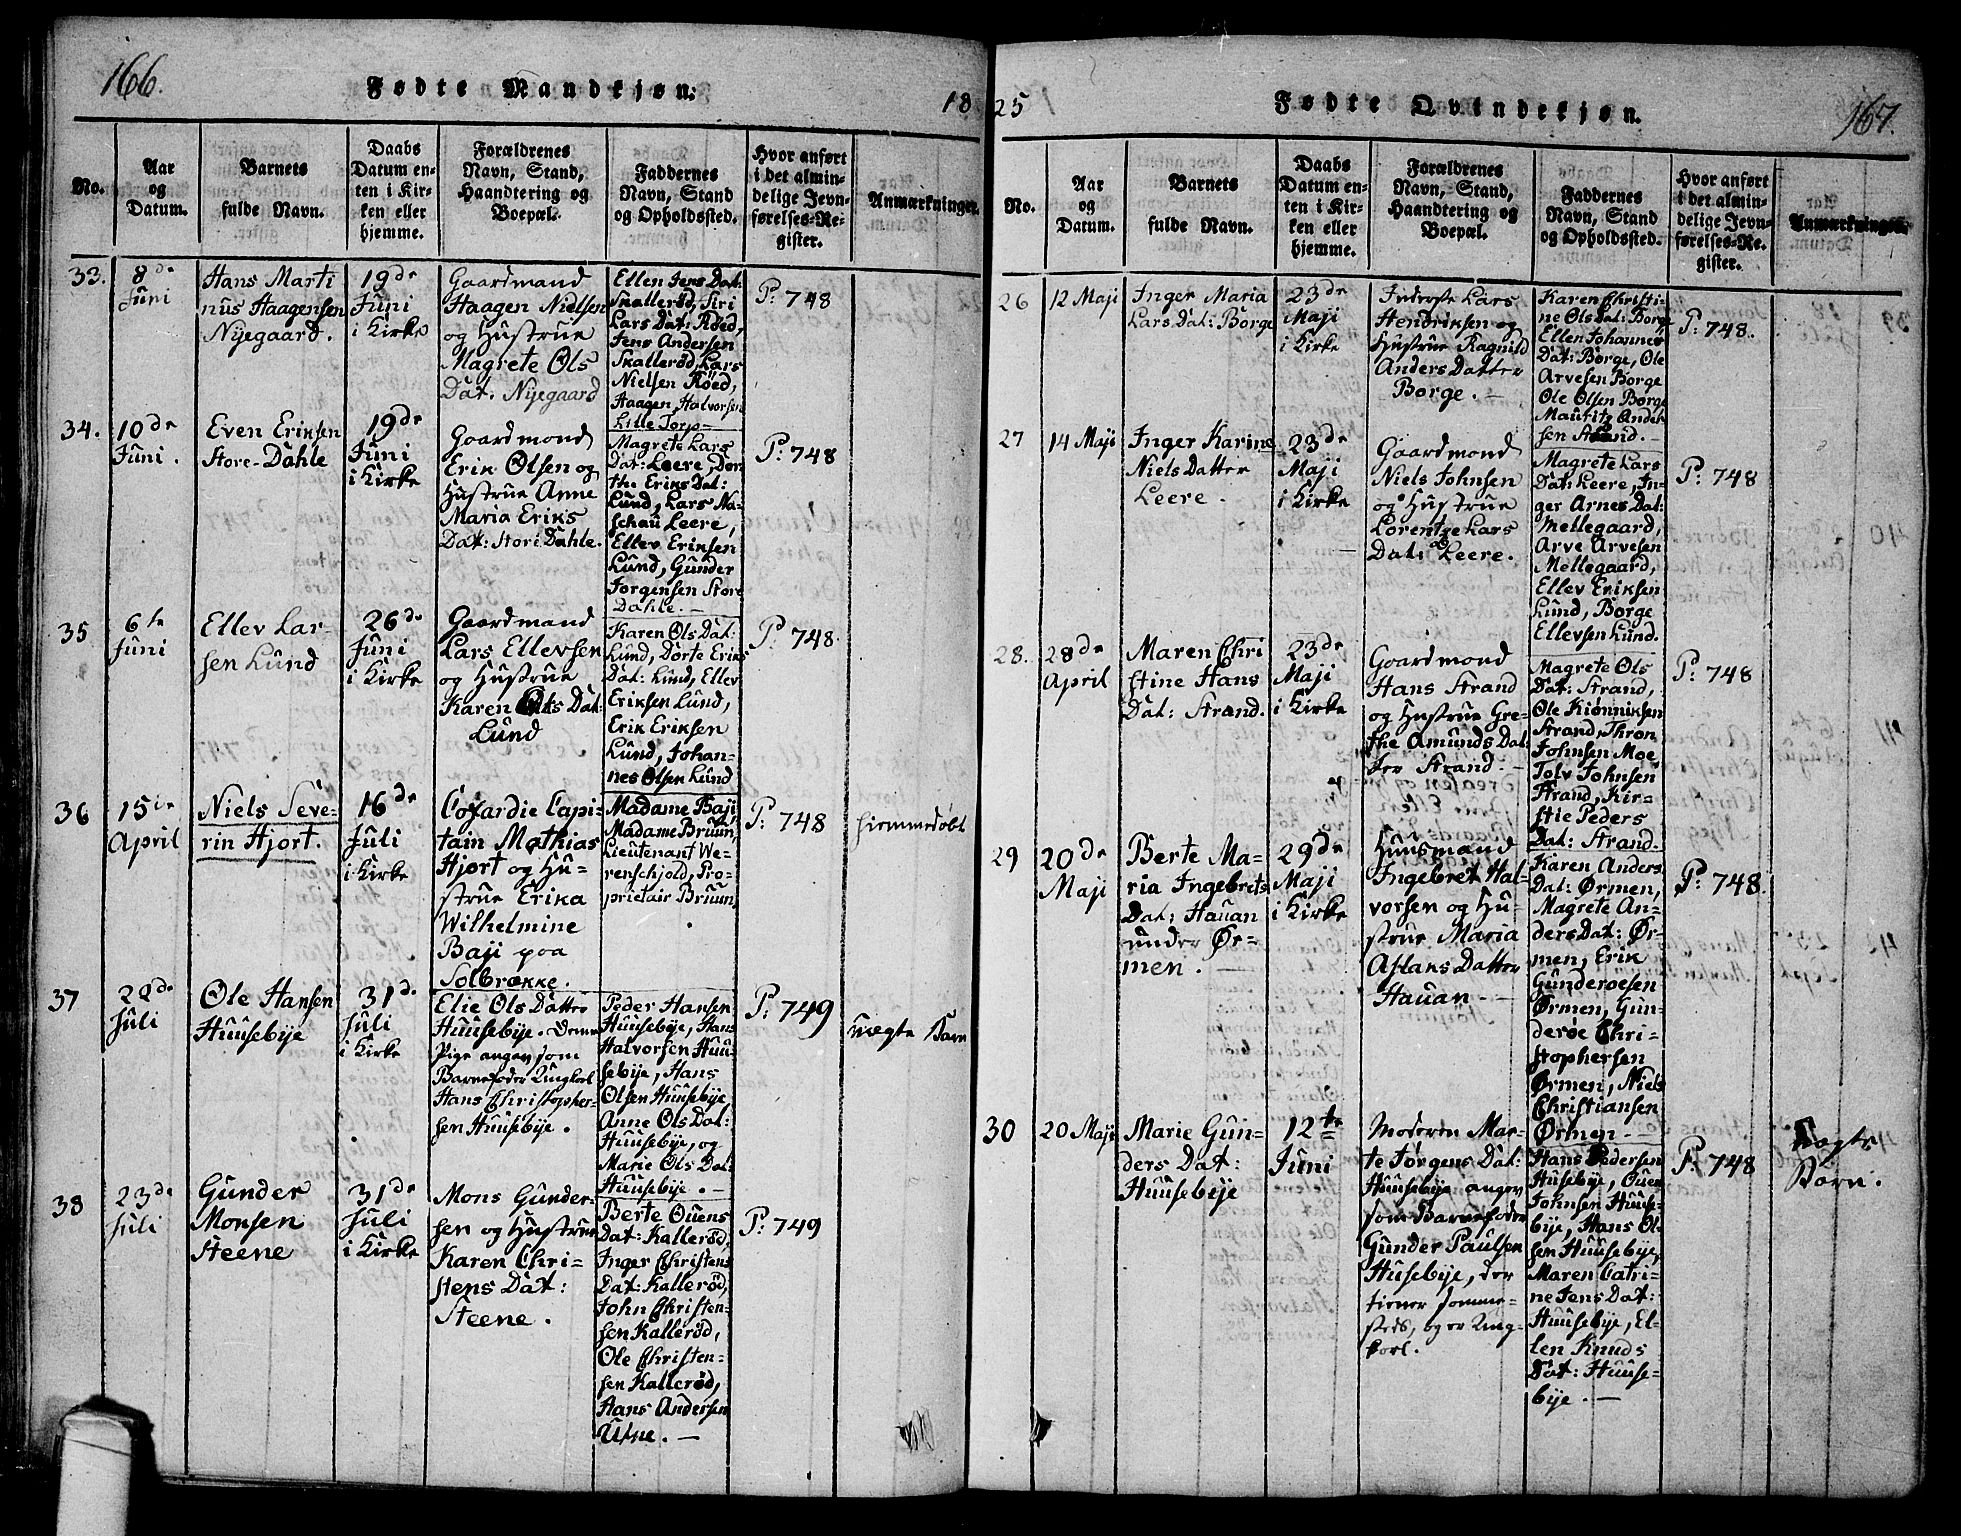 166.
Fødte Mandkjøn.
18
No.
Aar
og
Datum.
Barnets
fulde Navn.
Daabs
Datum en-
ten i Kir-
ken eller
hjemme.
Forældrenes
Navn, Stand,
Haandtering og
Boepæl.
Faddernes
Navn, Stand
og Opholdssted.
Hvor anført
i det almin-
delige Jevn-
førelses-Re-
gister.
Anmærkninger.
33.
8de
Juni
Hans Marti
nus Haagensen
Nyegaard.
19de
Juni
i Kirke
Gaardmand
Haagen Nielsen
og Hustrue
Magrete Ols
Dat. Nyegaard
Ellen Jens Dat:
Skallerød, Siri
Lars Dat: Röed,
Jens Andersen
Skallerød, Lars
Nielsen Röed,
Haagen Halvorsen
Lille Torp
P: 748
34.
10de
Juni.
Even Eriksen
Store-Dahle
19de
Juni
i Kirke
Gaardmand
Erik Olsen og
Hustrue Anne
Maria Eriks
Dat: Store Dahle.
Magrete Lars
Dat: Leere, Dor
the Eriks Dat:
Lund, Lars Na-
schau Leere,
Ellev Eriksen
Lund, Gunder
Jorgensen Store
Dahle. —
P: 748
35
6te
Juni
Ellev Lar-
sen Lund
26de
Juni
i Kirke
Gaardmand
Lars Ellevsen
og Hustrue
Karen Ols Dat:
Lund
Karen Ols Dat:
Lund, Dorte Eriks
Dat: Lund, Ellev
Eriksen Lund,
Erik Eriksen
Lund, Johan-
nes Olsen Lund
P: 748
36
15de
April
Niels Seve-
rin Hjort.
16de
Juli
i Kirke
Cofardie Capi-
tain Mathias
Hjort og Hu-
strue Erika
Wilhelmine
Baji paa
Solbrække.
Madame Baji,
Madame Bruun,
Lieutenant We-
renschjold, Pro-
prietair Bruun.
P: 748
hiemmedøbt
37
22de
Juli
Ole Hansen
Huusebye
31de
Juli
i Kirke
Elie Ols Datter
Huusebye. Denne
Pige angav som
Barnefader Ungkarl
Hans Christopher-
sen Huusebye.
Peder Hansen
Huusebye, Hans
Halvorsen Huu-
sebye, Hans
Olsen Huusebye
Anne Ols Dat:
Huusebye, og
Marie Ols Dat:
Huusebye. —
P: 749
uægte Barn
38
23de
Juli
Gunder
Monsen
Steene
31de
Juli
i Kirke
Mons Gunder-
sen og Hustrue
Karen Chri-
stens Dat:
Steene.
Berte Ouens
Dat: Kallerød,
Inger Christens
Dat: Kallerød,
John Christen-
sen Kallerød,
Ole Christen-
sen Kallerød,
Hans Andersen
Utne. —
P: 749
25
Fødte Qvindekjøn.
167.
No.
Aar
og
Datum.
Barnets
fulde Navn.
Daabs
Datum en-
ten i Kir-
ken eller
hjemme.
Forældrenes
Navn, Stand,
Haandtering og
Boepæl.
Faddernes
Navn, Stand
og Opholdssted.
Hvor anført
i det almin-
delige Jevn-
førelses-Re-
gister.
Anmærkninger.
26
12 Maji
Inger Maria
Lars Dat: Borge
23de
Maji
i Kirke
Inderste Lars
Hendriksen og
Hustrue Ragnild
Anders Datter
Borge. —
Karen Christi-
ne Ols Dat: Borge
Ellen Johannes
Dat: Borge, Ole
Arvesen Borge
Ole Olsen Borge
Mauritz Ander
sen Strand. —
P: 748.
27
14 Maji
Inger Karine
Niels Datter
Leere.
23de
Maji
i Kirke
Gaardmand
Niels Johnsen
og Hustrue
Lorentze Lars
Dat: Leere.
Magrete Lars
Dat: Leere, In-
ger Arnes Dat:
Mellegaard,
Arve Arvesen
Mellegaard,
Ellev Eriksen
Lund, Borge
Ellevsen Lund.
P: 748
28.
28de
April
Maren Chri
stine Hans
Dat: Strand.
23de
Maji
i Kirke
Gaardmand
Hans Strand
og Hustrue Gre-
the Amunds Dat-
ter Strand. —
Magrete Ols
Dat: Strand,
Ole Kiönniksen
Strand, Thron
Johnsen Moe,
Tolv Johnsen
Strand, Kir-
stie Peders
Dat: Strand.
P: 748
29
20de
Maji
Berte Ma-
ria Ingebrets
Dat: Hauan
under Ør-
men. —
29de
Maji
i Kirke
Huusmand
Ingebret Hal-
vorsen og Hu-
strue Maria
Aslans Datter
Hauan. —
Karen Anders
Dat: Ørmen,
Magrete An-
ders Dat: Ør-
men, Erik
Gunderoesen
Ørmen, Gun-
deröe Chri-
stophersen
Ørmen, Niels
Christiansen
Ørmen. —
P: 748.
30
20 Maji
Marie Gun-
ders Dat:
Huusebye
12te
Juni
Moderen Mar-
te Jörgens Dat:
Huusebye angav
som Barnefader
Gunder Paulsen
Husebye, der
tiener samme-
steds, og er Ung-
karl.
Hans Pedersen
Husebye, Ouen
Johnsen Huuse-
bye, Hans Ol
sen Huusebye,
Maren Catri-
ne Jens Dat:
Huusebye, El-
len Knuds
Dat: Huuse-
bye. —
P: 748
Uægte
Barn.